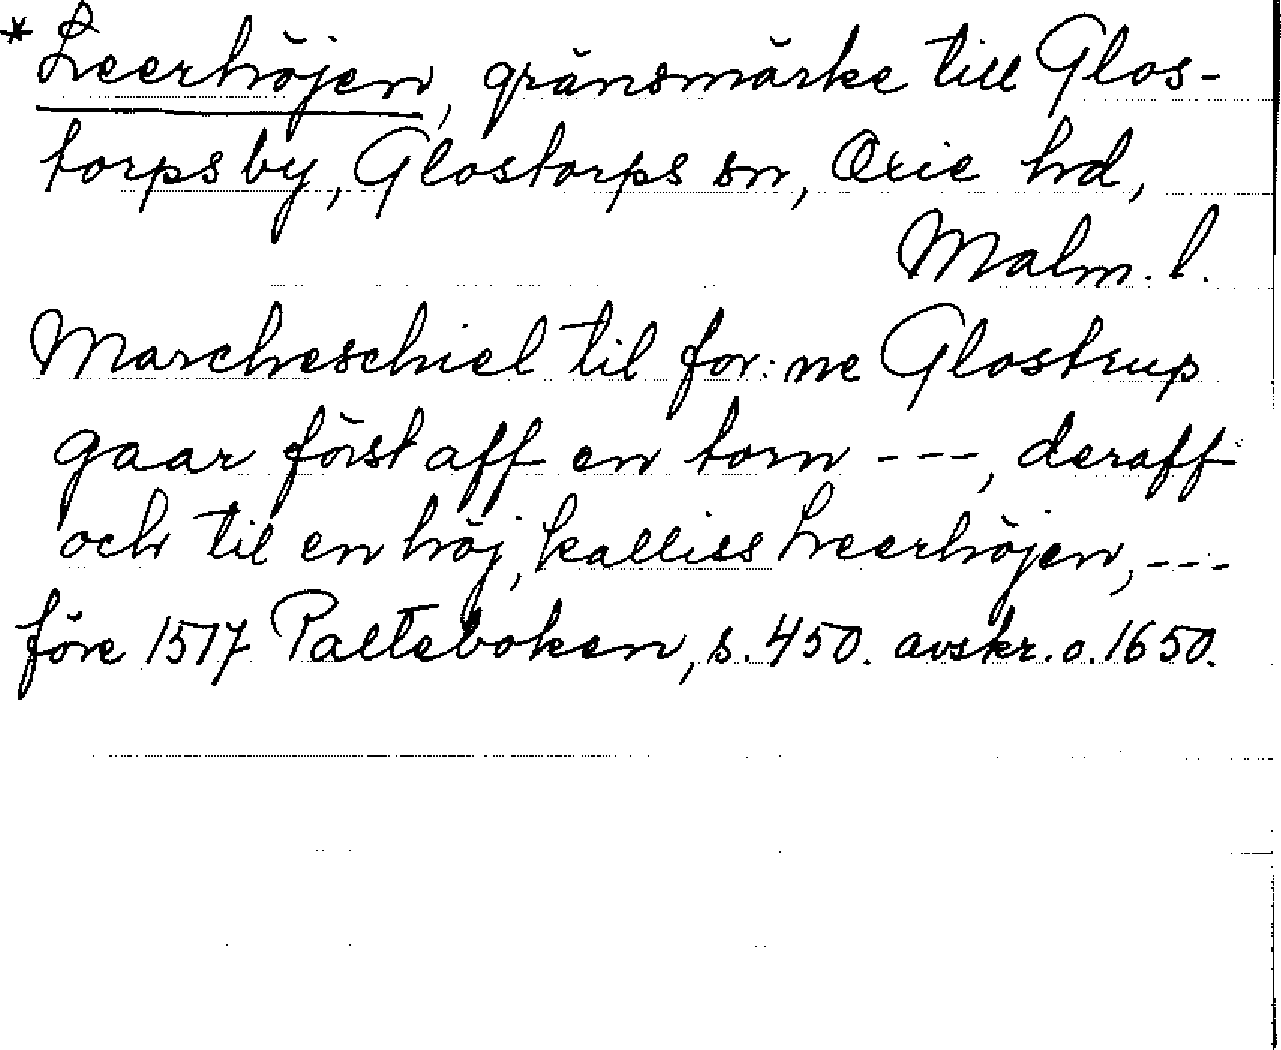 *Leerhöjen, gränsmärke till Glos-
torps by, Glostorps sn, Oxie hd,
Malm. l.
Marcheschiel til for:ne Glostrup
gaar först aff en torn ---, deraff
och til en höj, kalliss Leerhöjen, ---
före 1517 Palteboken, s. 450. avskr. o. 1650.